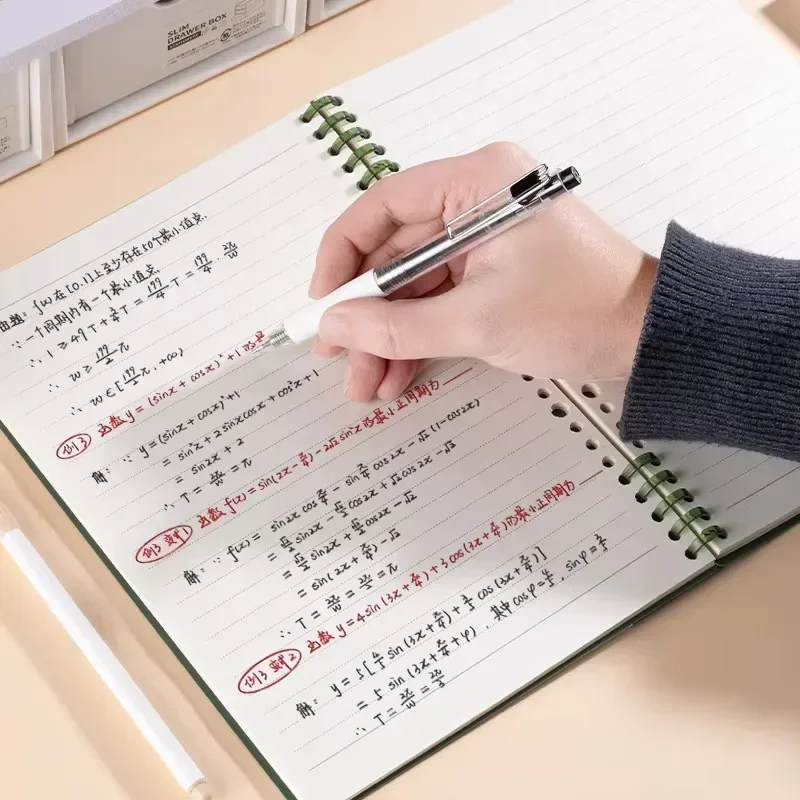 SLIM
DRAWER BOX
由题: f(x)在[0,1]上至少存在50个最小值点.
∵一个周期内有一个最小值点
∴ 1 ≥ 49T + 3/4 T = 199/4 T = 199/4 · 2π/w
∴ w ≥ 199/2 π
∴ w∈[199/2 π, +∞)
例3 函数y=(sinx+cosx)²+1的是
解: ∵ y=(sinx+cosx)²+1
= sin²x+2sinxcosx+cos²x+1
= sin2x+2
∴ T = 2π/w = π
例3 变1 函数 f(x)=sin(2x-π/4)-2√2 sin²x的最小正周期为
解: ∵ f(x)= sin2x cos π/4 - sin π/4 cos2x - √2 (1-cos2x)
= √2/2 sin2x - √2/2 cos2x + √2 cos2x - √2
= √2/2 sin2x + √2/2 cos2x - √2
= sin(2x+π/4)-√2
∴ T = 2π/w = 2π/2 = π
例3 变2 函数 y=4sin(3x+π/4)+3cos(3x+π/4)的最小正周期为
解: y=5[4/5 sin(3x+π/4)+3/5 cos(3x+π/4)]
= 5 sin(3x+π/4+φ), 其中cosφ=4/5, sinφ=3/5
∴ T = 2π/w = 2π/3